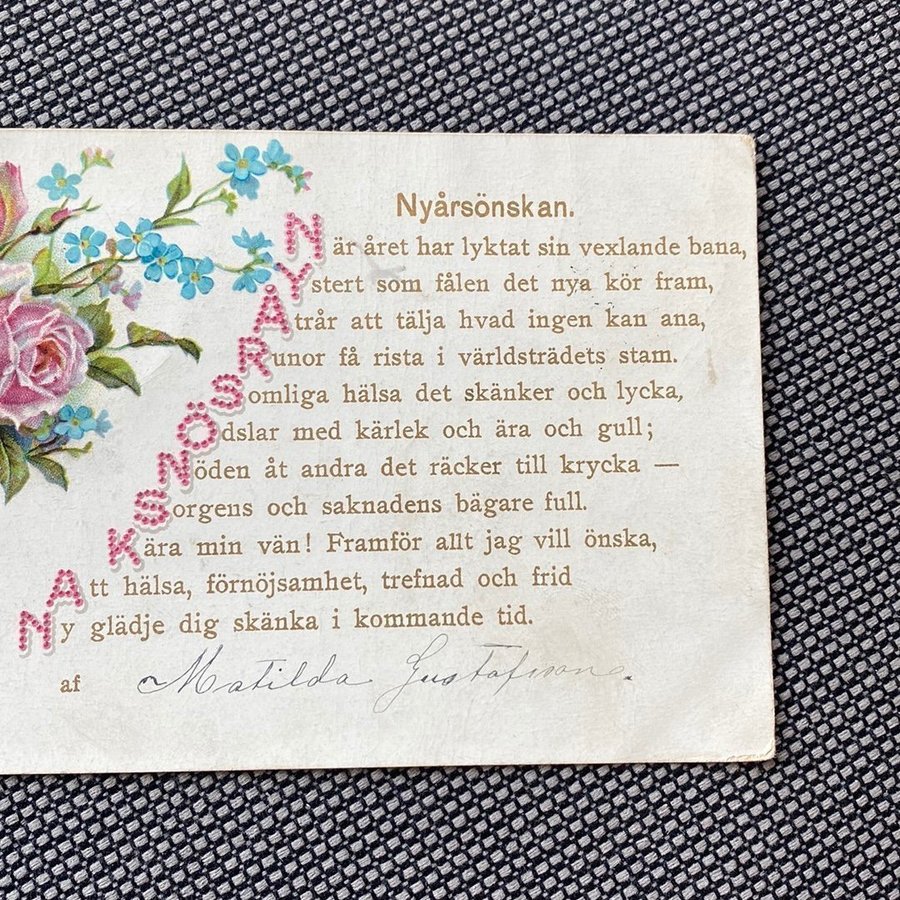 Nyårsönskan.
När året har lyktat sin vexlande bana,
Ystert som fålen det nya kör fram,
Åtrår att tälja hvad ingen kan ana,
Runor få rista i världsträdets stam.
Somliga hälsa det skänker och lycka,
Ödslar med kärlek och ära och gull;
Nöden åt andra det räcker till krycka —
Sorgens och saknadens bägare full.
Kära min vän! Framför allt jag vill önska,
Att hälsa, förnöjsamhet, trefnad och frid
Ny glädje dig skänka i kommande tid.
af Matilda Gustafsson.